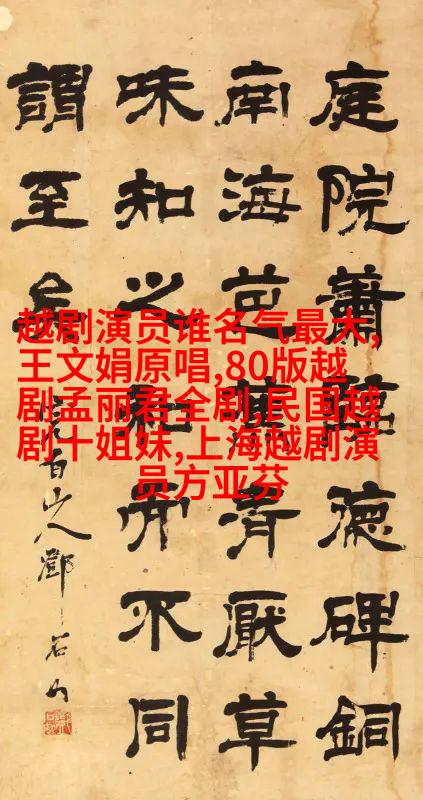 越剧演员谁名气最大,
王文娟原唱,80版越
剧孟丽君全剧,民国越
剧十姐妹,上海越剧演
员方亚芬
庭院蕭德碑銅
南海芭青厭草
味知之不同
謂至矣
完白山人鄧石如